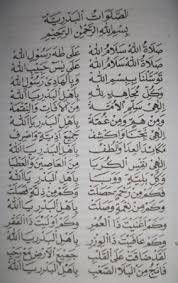 الصلوات البدرية
بسم الله الرحمن الرحيم
صلاة الله سلام الله على طه رسول الله
صلاة الله سلام الله على يس حبيب الله
توسلنا ببسم الله وبالهادي رسول الله
وكل مجاهد لله باهل البدر يا الله
الهي سلم الامة من الافات والنقمة
ومن هم ومن غمة باهل البدر يا الله
الهي نجنا واكشف جميع اذية واصرف
مكائد العدا والطف باهل البدر يا الله
الهي نفس الكربا من العاصين والعطبا
وكل بلية ووبا باهل البدر يا الله
وكم من رحمة حصلت وكم من ذلة فصلت
وكم من نعمة وصلت باهل البدر يا الله
وكم اغنيت ذا العمر وكم اوليت ذا الفقر
وكم عافيت ذا الوزر باهل البدر يا الله
لقد ضاقت على القلب جميع الارض مع رحب
فانج من البلا الصعب باهل البدر يا الله